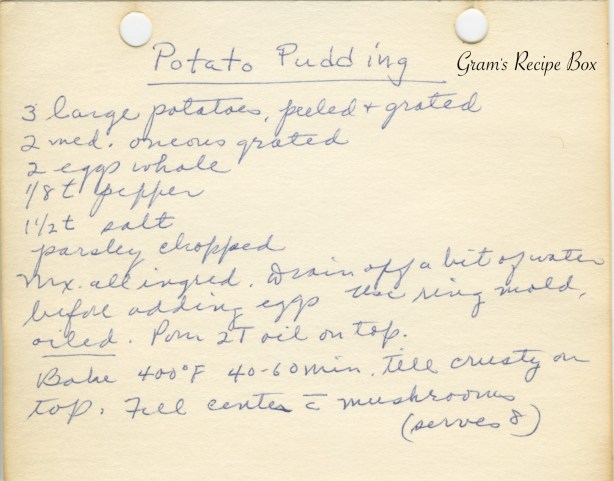 Potato Pudding
Gram's Recipe Box
3 large potatoes, peeled + grated
2 med. oneons grated
2 eggs whole
1/8 t pepper
1 1/2 t salt
parsley chopped
Mix. all ingred. Drain off a bit of water
before adding eggs Use ring mold,
oiled. Pour 2T oil on top.
Bake 400°F 40-60 min. till crusty on
top. Fill center c̄ mushrooms
(serves 8)